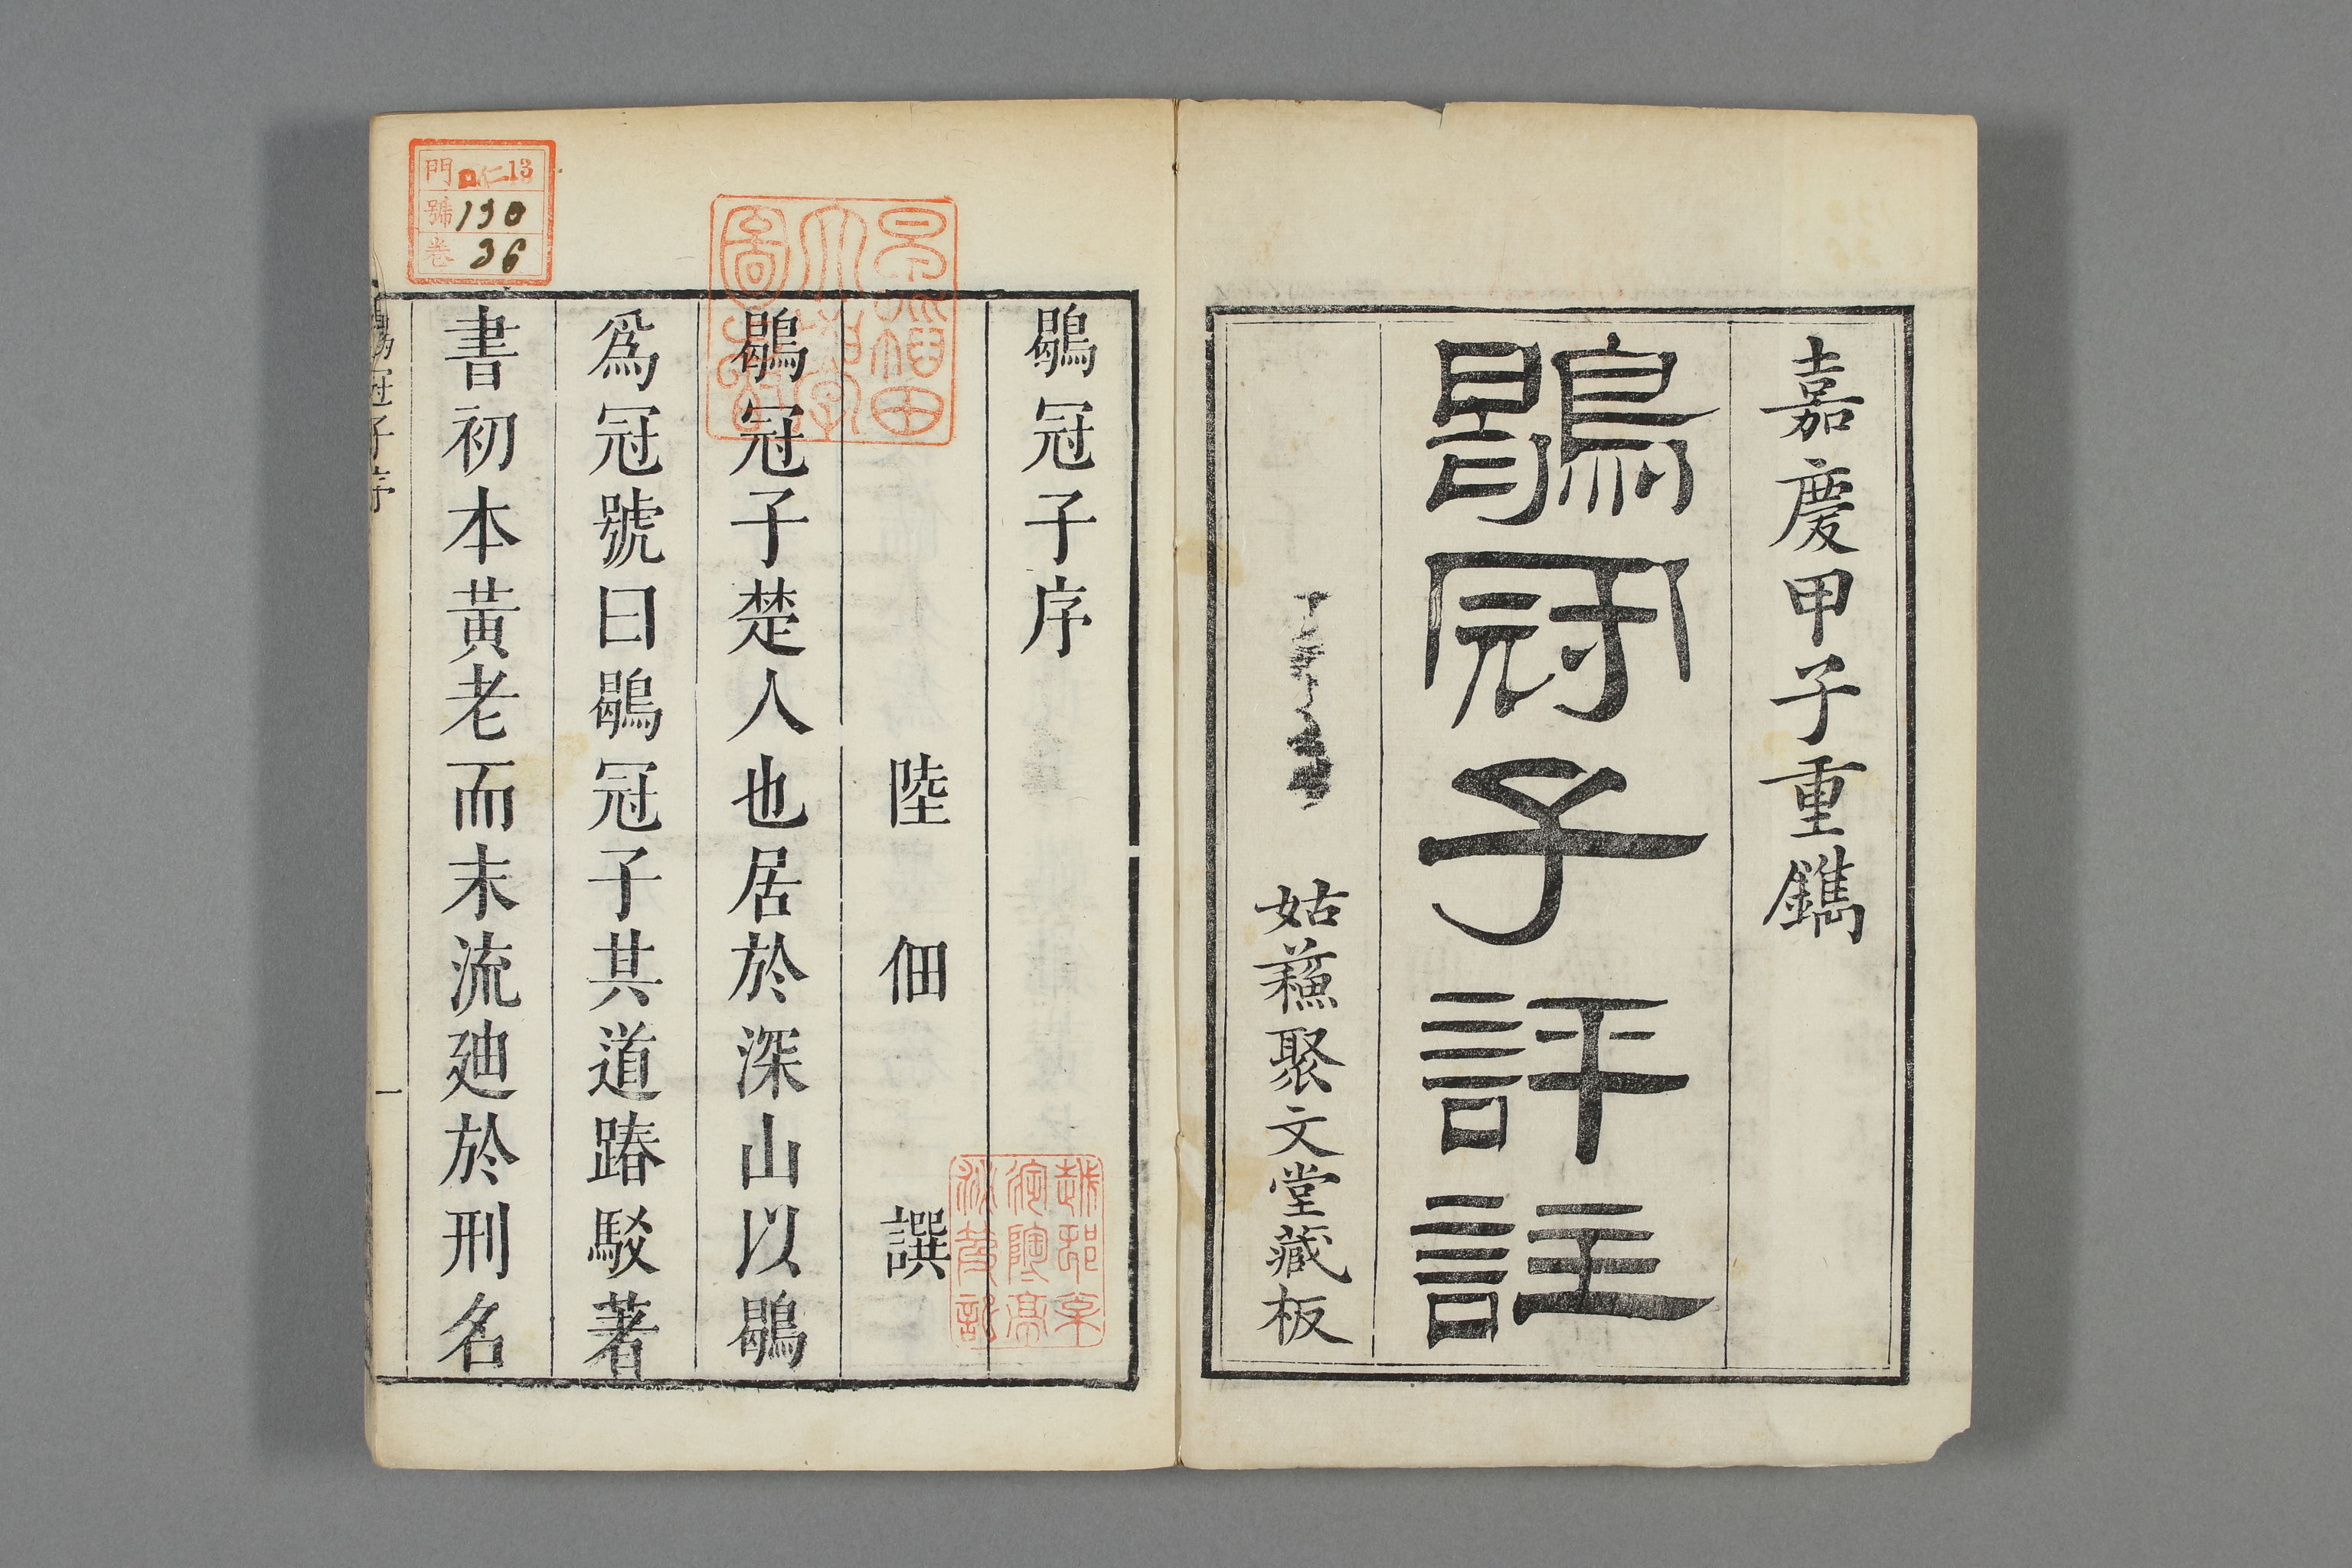 嘉慶甲子重鐫
鶡冠子評註
姑蘓聚文堂藏板
鶡冠子序
陸佃譔
鶡冠子楚人也居於深山以鶡
爲冠號曰鶡冠子其道踳駁著
書初本黃老而末流廸於刑名
鶡冠子序
一
早稲田
大學
圖書
門 仁 13
號 190
卷 36